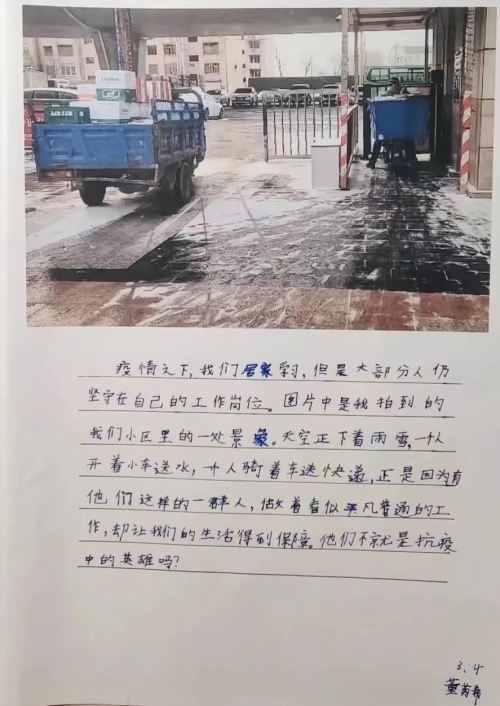 疫情之下,我们居家学习,但是大部分人仍
坚守在自己的工作岗位。图片中是我拍到的
我们小区里的一处景象。天空正下着雨雪,一个人
开着小车送水,一个人骑着车送快递,正是因为有
他们这样的一群人,做着看似平凡普通的工
作,却让我们的生活得到保障。他们不就是抗疫
中的英雄吗?
3.4
董芮希